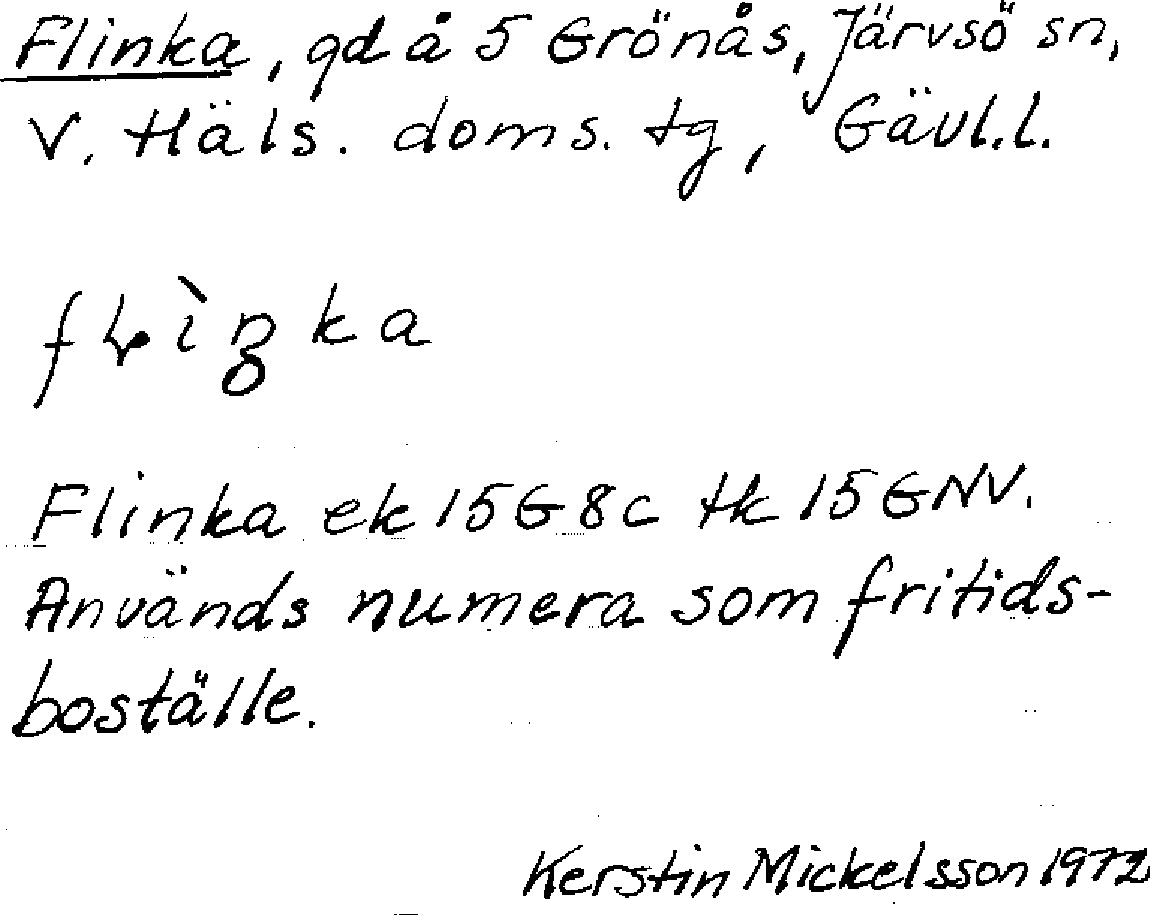 Flinka, gd å 5 Grönås, Järvsö sn,
V. Häls. doms. tg, Gävl.l.
Flinka ek 15G8c tk 15GNV.
Används numera som fritids-
boställe.
Kerstin Mickelsson 1972